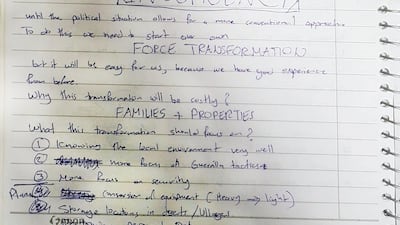 until the political situation allows for a more conventional approache
To do this we need to start our own
FORCE TRANSFORMATION
but it will be easy for us, because we have good experience
from before.
Why this transformation will be costly?
FAMILIES + PROPERTIES
What this transformation should focus on?
① Knowing the local environment very well
② more focus of Guerilla tactics
③ More focus on security
④ conversion of equipment (Heavy → light)
Storage locations in deserts/Villages